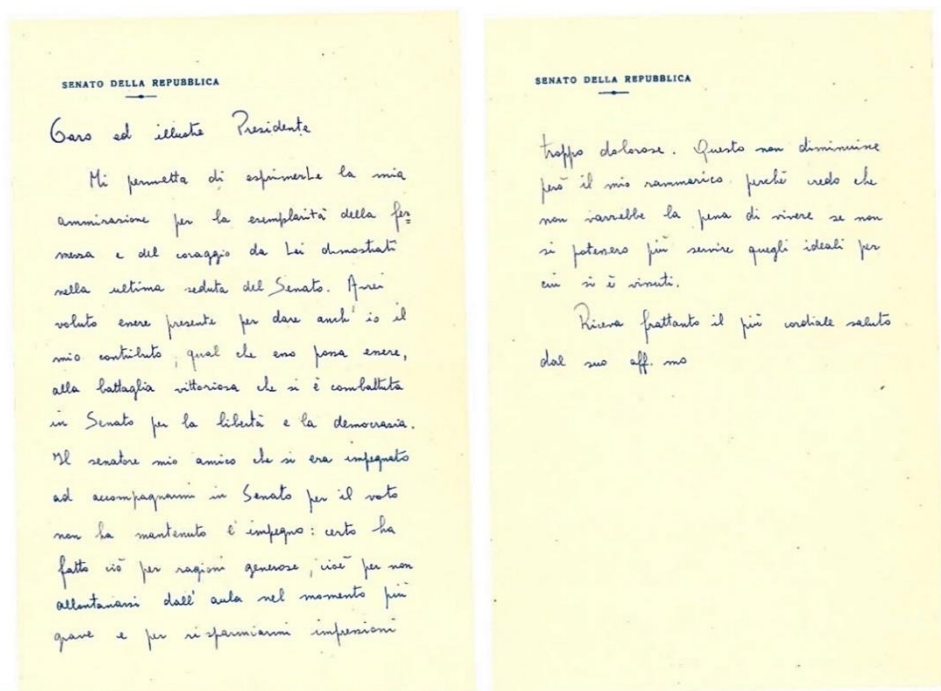 SENATO DELLA REPUBBLICA
Caro ed illustre Presidente
Mi permetta di esprimerLe la mia
ammirazione per la esemplarità della fer=
mezza e del coraggio da Lei dimostrati
nella ultima seduta del Senato. Avrei
voluto essere presente per dare anch'io il
mio contributo, qual che esso possa essere,
alla battaglia vittoriosa che si è combattuta
in Senato per la libertà e la democrazia.
Il senatore mio amico che si era impegnato
ad accompagnarmi in Senato per il voto
non ha mantenuto l'impegno: certo ha
fatto ciò per ragioni generose, cioè per non
allontanarsi dall'aula nel momento più
grave e per risparmiarmi impressioni
SENATO DELLA REPUBBLICA
troppo dolorose. Questo non diminuisce
però il mio rammarico perché credo che
non varrebbe la pena di vivere se non
si potessero più servire quegli ideali per
cui si è vissuti.
Riceva frattanto il più cordiale saluto
dal suo aff.mo